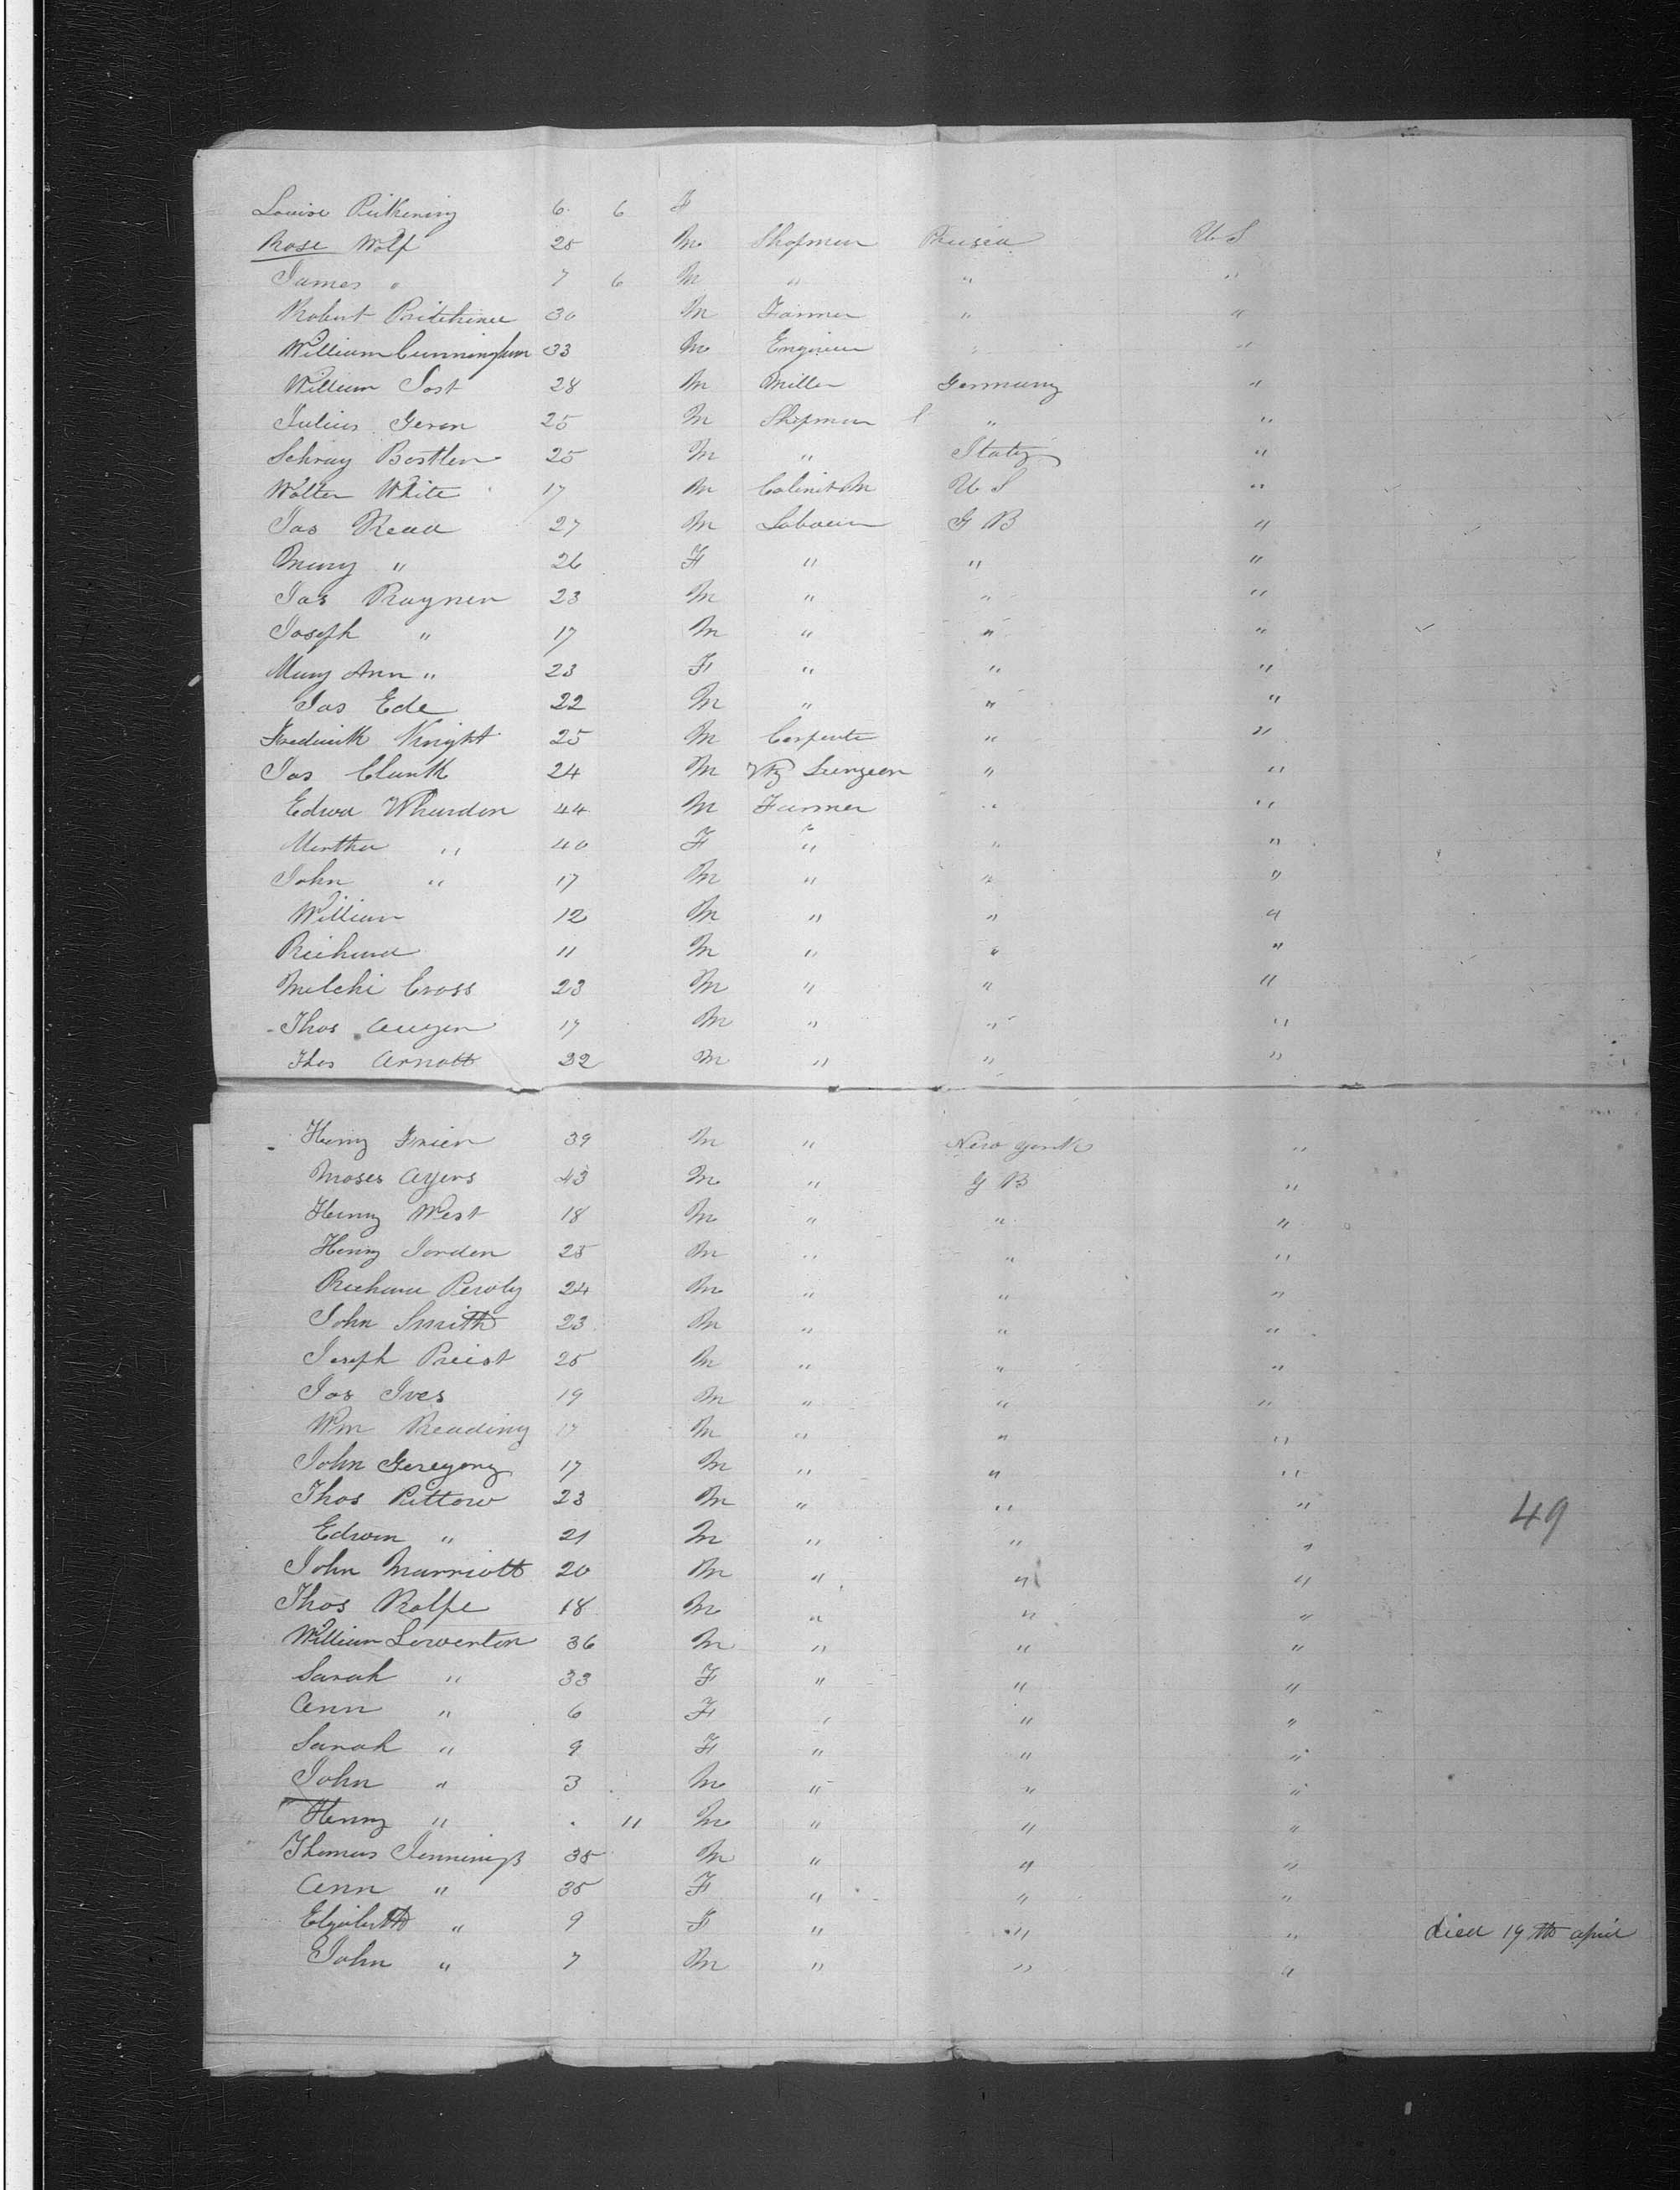 Louise Pickening 6 6 F
Rose Wolf 25 M Shopman Prusia U S
James " 7 6 M " " "
Robert 30 M Farmer " "
William Cunningham 33 M Engineer " "
William Jost 28 M Miller Germany "
Julius Geron 25 M Shopman " "
Schray Bostlen 25 M " Italy "
Walter White 17 M Cabinet M U S "
Jas Read 27 M Labourer G B "
Mary " 26 F " " "
Jas Rayner 23 M " " "
Joseph " 17 M " " "
Mary Ann " 23 F " " "
Jas Ede 22 M " " "
Frederick Knight 25 M Carpenter " "
Jas Clunk 24 M Surgeon " "
Edwd Whardon 44 M Farmer " "
Martha " 40 F " " "
John " 17 M " " "
William 12 M " " "
Richard 11 M " " "
Melchi Cross 23 M " " "
Thos Augen 17 M " " "
Thos Arnott 32 M " " "
Henry Frier 39 M " New York "
Moses Ayers 43 M " G B "
Henry West 18 M " " "
Henry Jorden 25 M " " "
Richard 24 M " " "
John Smith 23 M " " "
Joseph Preist 25 M " " "
Jas Ives 19 M " " "
Wm Reading 17 M " " "
John Geregory 17 M " " "
Thos Rittow 23 M " " "
49
Edwin " 21 M " " "
John Marriott 20 M " " "
Thos Rolfe 18 M " " "
William Lewerton 36 M " " "
Sarah " 33 F " " "
Ann " 6 F " " "
Sarah " 9 F " " "
John " 3 M " " "
Henry " 11 M " " "
Thomas Jennings 35 M " " "
Ann " 35 F " " "
Elizabeth " 9 F " " " died 19th april
John " 7 M " " "